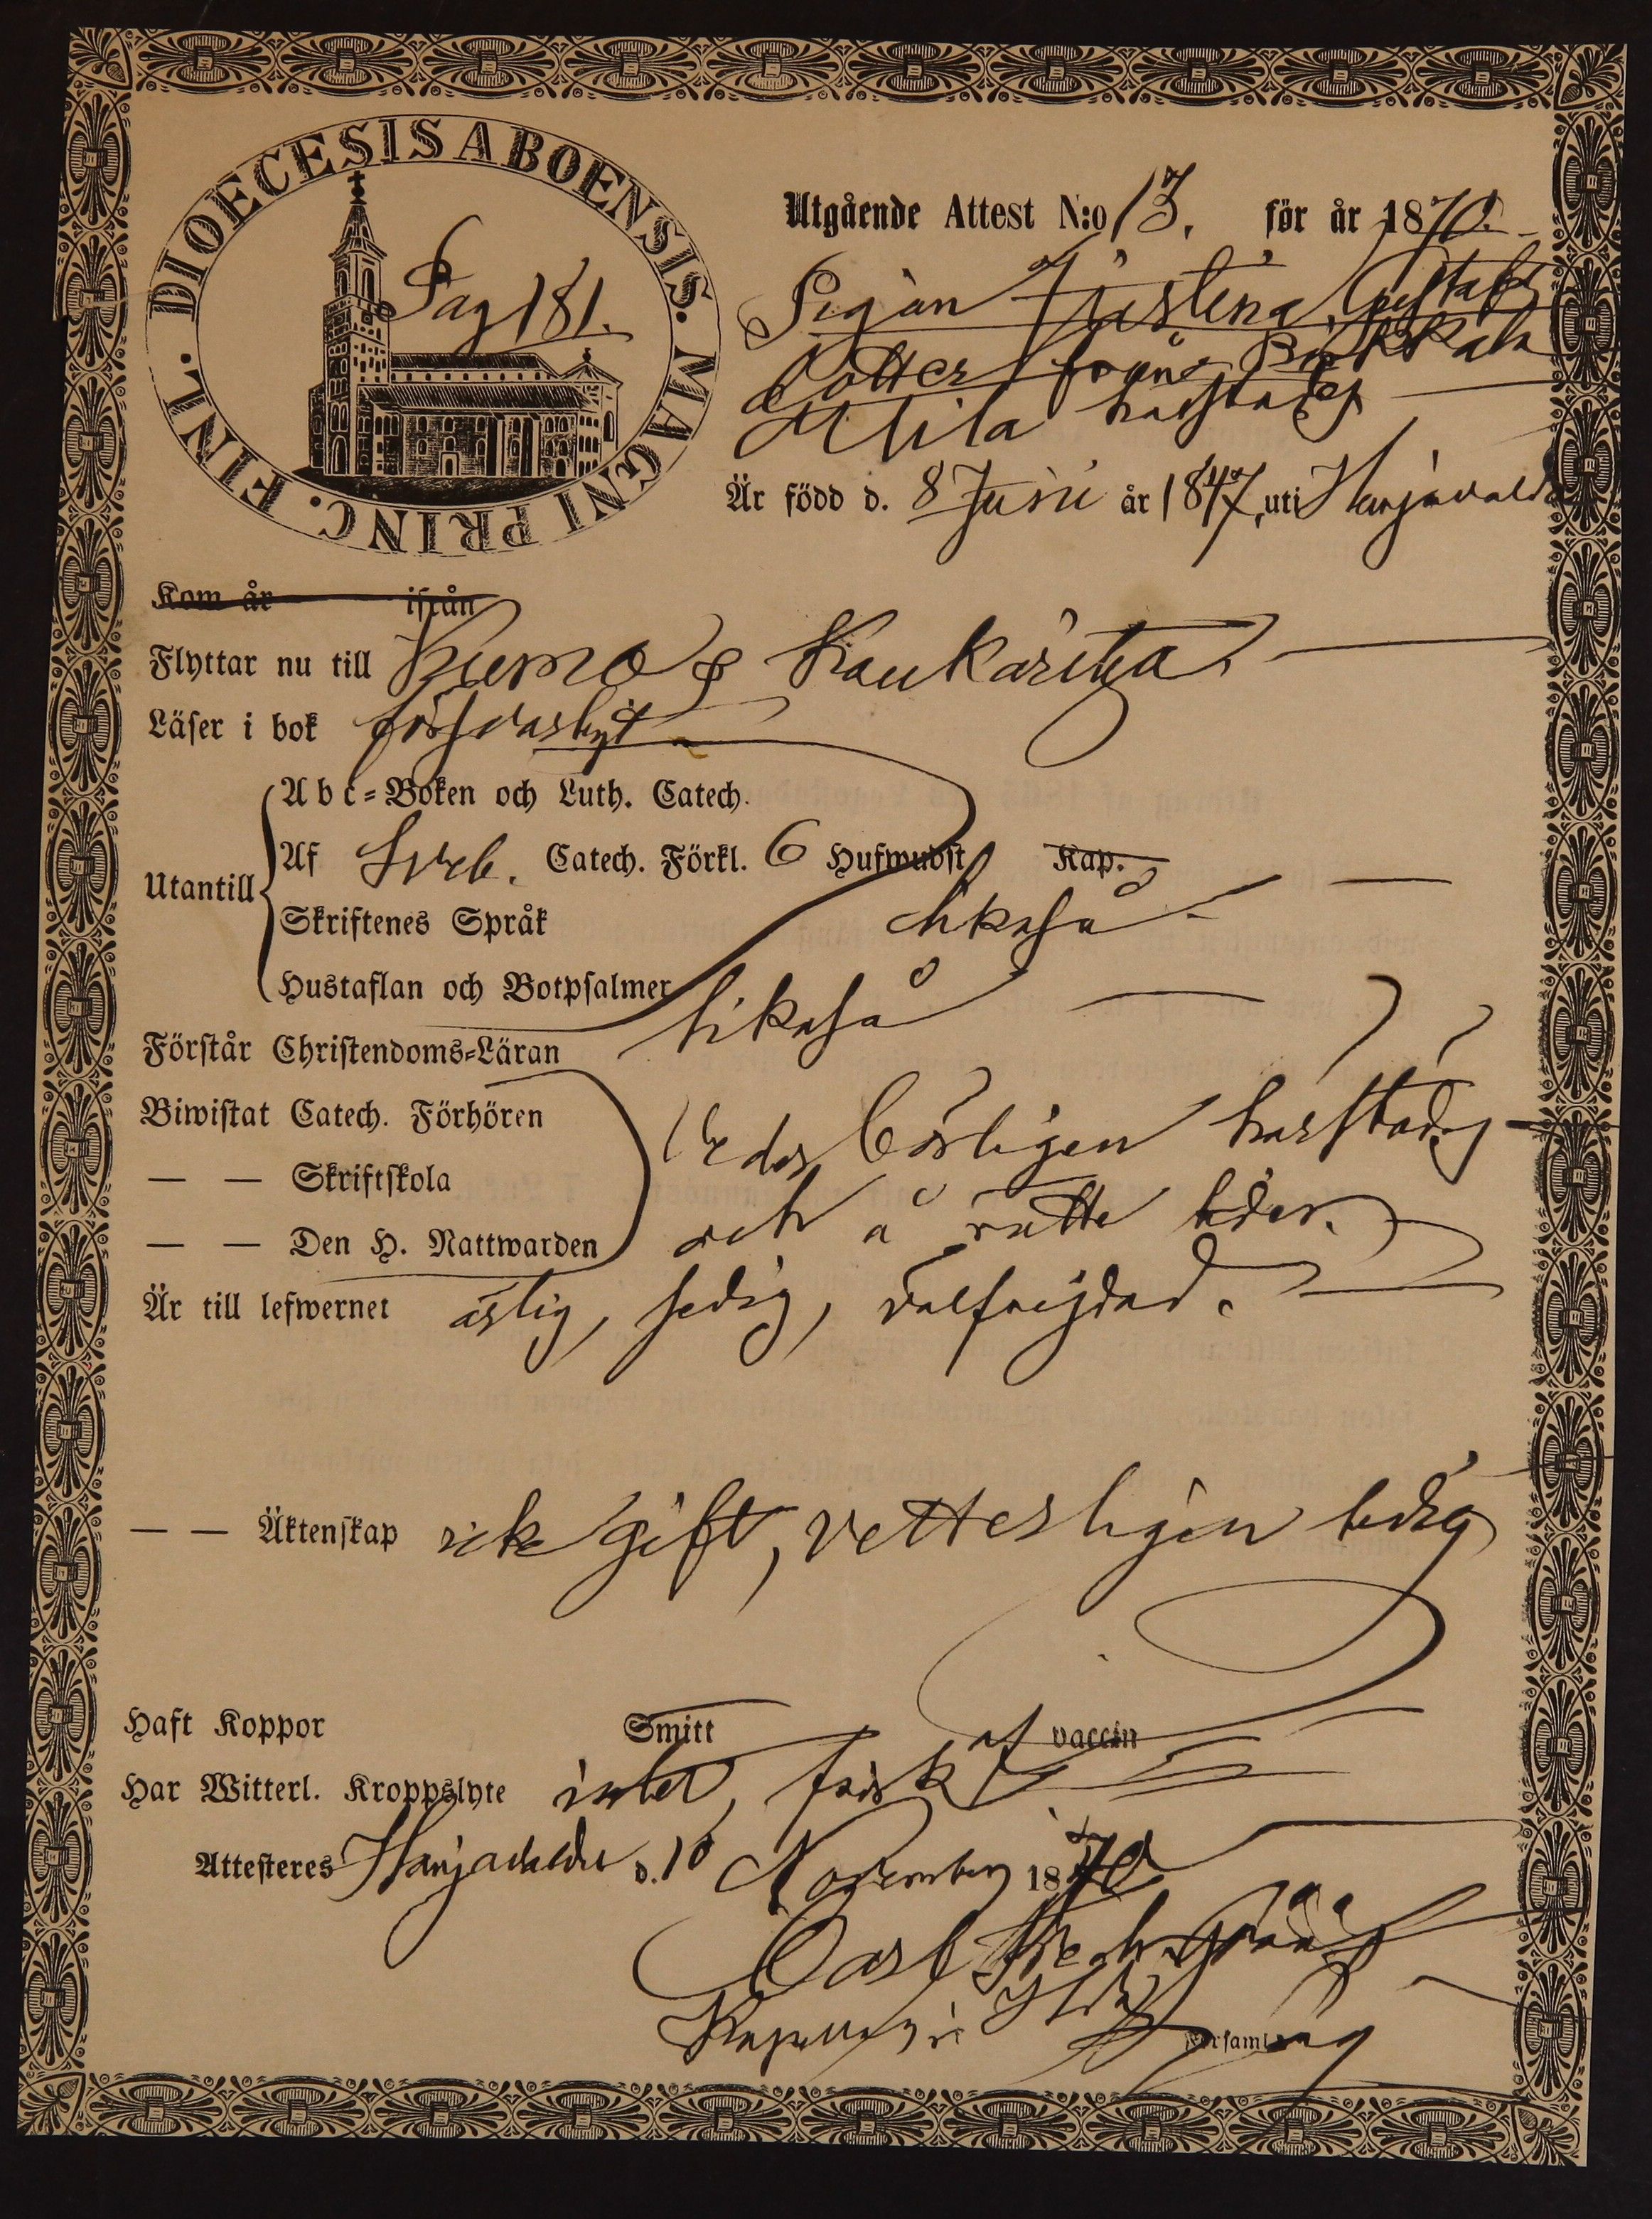 DIOECESIS ABOENSIS. MAGNI PRINC. FINL.
Pag 181.
Utgående Attest N:o 13. för år 1870.
Pigan Justina Gustafs
dotter från
Attila härstädes
Är född d. 8 Juni år 1847, uti Harjavalda
Kom år ifrån
Flyttar nu till Kumo & Kaukaritza
Läser i bok försvarligt
Utantill
Abc-Boken och Luth. Catech.
Af Sveb. Catech. Förkl. 6 Hufwudst Kap.
Skriftenes Språk likaså
Hustaflan och Botpsalmer
Förstår Christendoms-Läran likaså
Biwistat Catech. Förhören
— — Skriftskola
— — Den H. Nattwarden
Vederbörligen härstädes
och å rätte tider.
Är till lefwernet ärlig, sedig, välfrejdad.
— — Äktenskap icke gift, vetterligen ledig
Haft Koppor Smitt af vaccin
Har Witterl. Kroppslyte intet, frisk
Attesteres Harjavalda d. 10 November 1870
Carl
Kapellan i
Församling